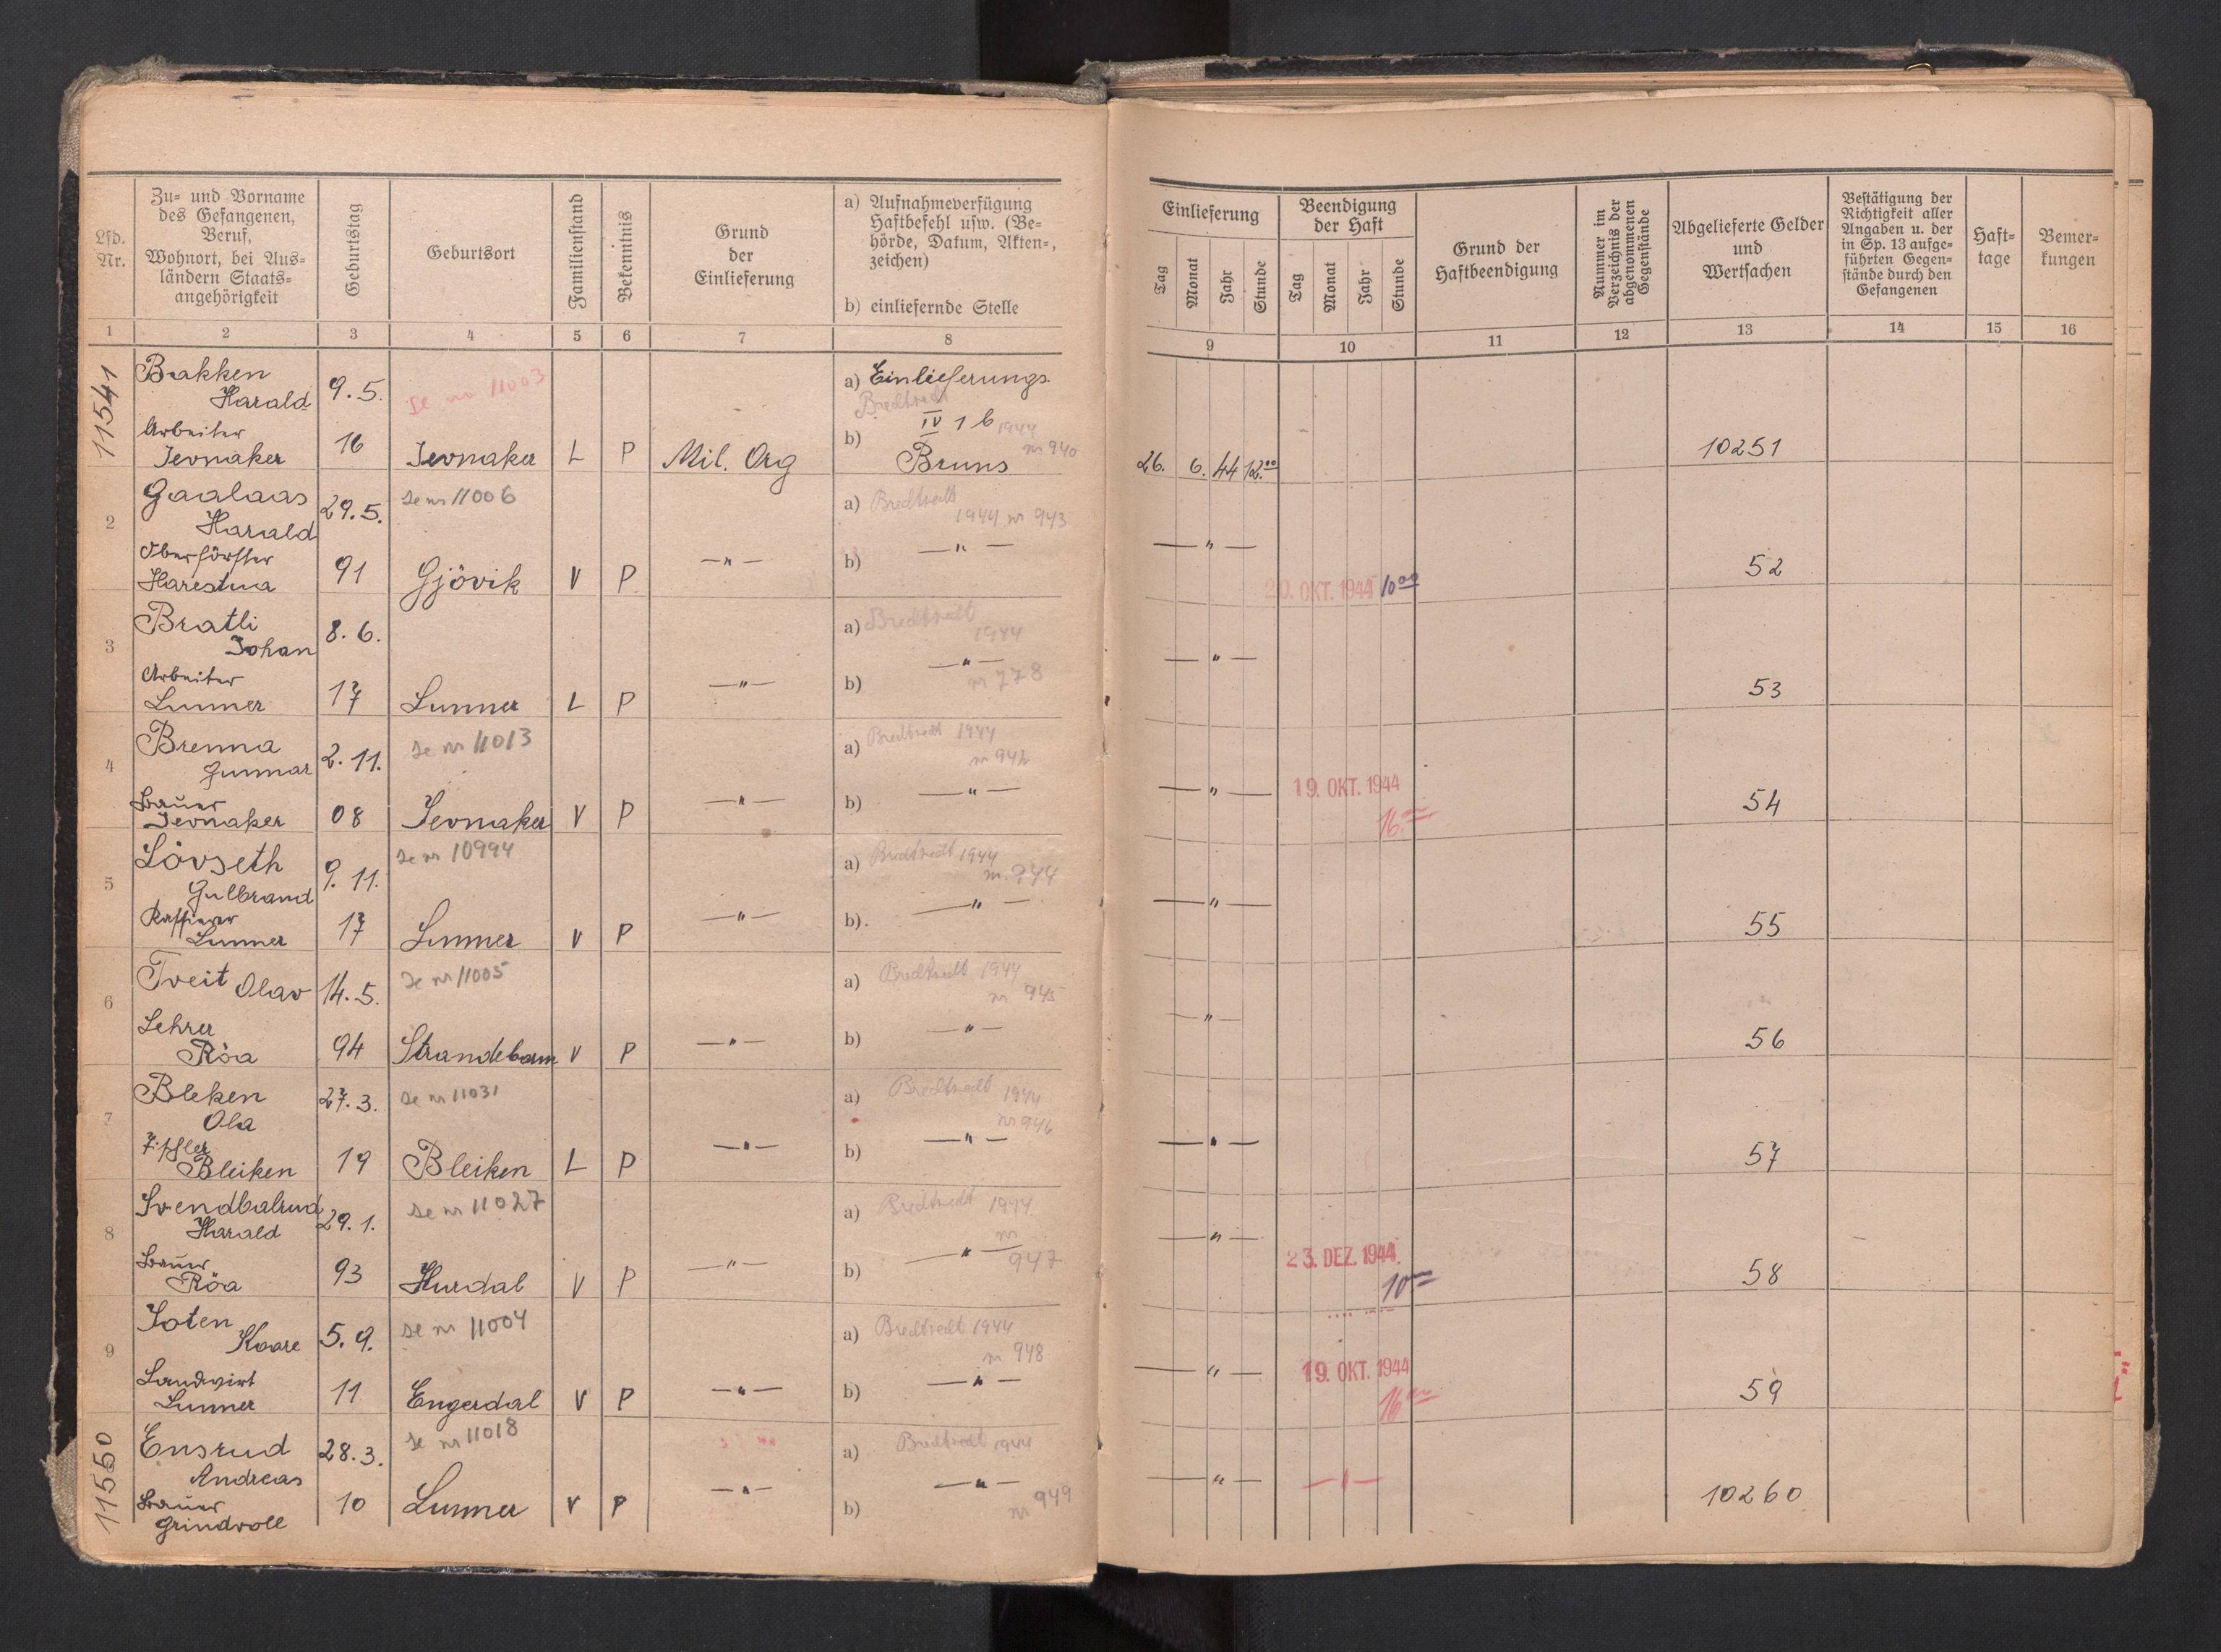 Lfd.
Nr.
Zu= und Vorname
des Gefangenen,
Beruf,
Wohnort, bei Aus=
ländern Staats=
angehörigkeit
Geburtstag
Geburtsort
Familienstand
Bekenntnis
Grund
der
Einlieferung
a) Aufnahmeverfügung
Haftbefehl usw. (Be=
hörde, Datum, Akten=,
zeichen)
b) einliefernde Stelle
Einlieferung
Tag Monat Jahr Stunde
Beendigung
der Haft
Tag Monat Jahr Stunde
Grund der
Haftbeendigung
Nummer im
Verzeichnis der
abgenommenen
Gegenstände
Abgelieferte Gelder
und
Wertsachen
Bestätigung der
Richtigkeit aller
Angaben u. der
in Sp. 13 aufge=
führten Gegen=
stände durch den
Gefangenen
Haft=
tage
Bemer=
kungen
1 2 3 4 5 6 7 8 9 10 11 12 13 14 15 16
11541
Bakken
Harald 9. 5. se nr 11003 a) Einlieferungs
Bredtveit
Arbeiter IV 1 b 1944
Jevnaker 16 Jevnaker L P Mil. Org b) Bruns nr 940 26. 6. 44 12.00 10251
Gaalaas se nr 11006
2 Harald 29. 5. a) Bredtvedt
1944 nr 943
Oberförster
Harestua 91 Gjövik V P —"— b) —"— —"— 20. OKT. 1944 10 00 52
Bratli
3 Johan 8. 6. a) Bredtvedt
1944
Arbeiter
Lunner 17 Lunner L P —"— b) —"— nr 778 —"— 53
Brenna se nr 11013
4 Gunnar 2. 11. a) Bredtvedt 1944
nr 942
Bauer
Jevnaker 08 Jevnaker V P —"— b) —"— —"— 19. OKT. 1944 16.00 54
Lövseth se nr 10994
5 Gulbrand 9. 11. a) Bredtvedt 1944
nr. 944
Kassierer
Lunner 17 Lunner V P —"— b) —"— —"— 55
Tveit Olav 14. 5. se nr 11005
6 a) Bredtvedt 1944
nr 945
Lehrer
Röa 94 Strandebarm V P —"— b) —"— —"— 56
Bleken 27. 3. se nr 11031
7 Ola a) Bredtvedt 1944
nr 946
Bleiken 19 Bleiken L P —"— b) —"— —"— 57
Svendbalrud se nr 11027
8 Harald 29. 1. a) Bredtvedt 1944
nr
947
Bauer
Röa 93 Hurdal V P —"— b) —"— —"— 23. DEZ. 1944 10 00 58
Soten
9 Kaare 5. 9. se nr 11004 a) Bredtvedt 1944
nr 948
Landwirt
Lunner 11 Engerdal V P —"— b) —"— —"— 19. OKT. 1944 16 00 59
11550
Ensrud 28. 3. se nr 11018 a) Bredtvedt 1944
Andreas
Bauer
Grindvoll 10 Lunner V P —"— b) —"— nr 949 —"— —"— 10260